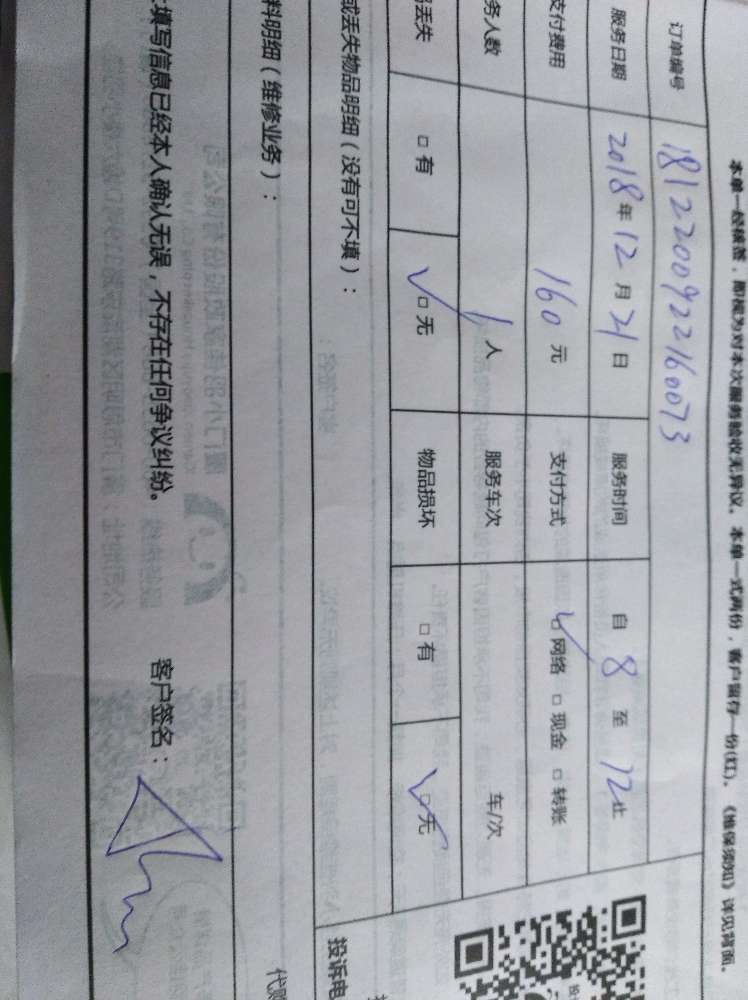 本单一经核签，即视为对本次服务验收无异议。本单一式两份，客户留存一份(红)。《维保须知》详见背面。
订单编号 1812200922160073
服务日期 2018年12月21日 服务时间 自8至12止
支付费用 160元 支付方式 ☑网络 □现金 □转账
务人数 1人 服务车次 车/次
品丢失 □有 ☑无 物品损坏 □有 ☑无
或丢失物品明细（没有可不填）：
料明细（维修业务）：
填写信息已经本人确认无误，不存在任何争议纠纷。 客户签名：
投诉电
代购